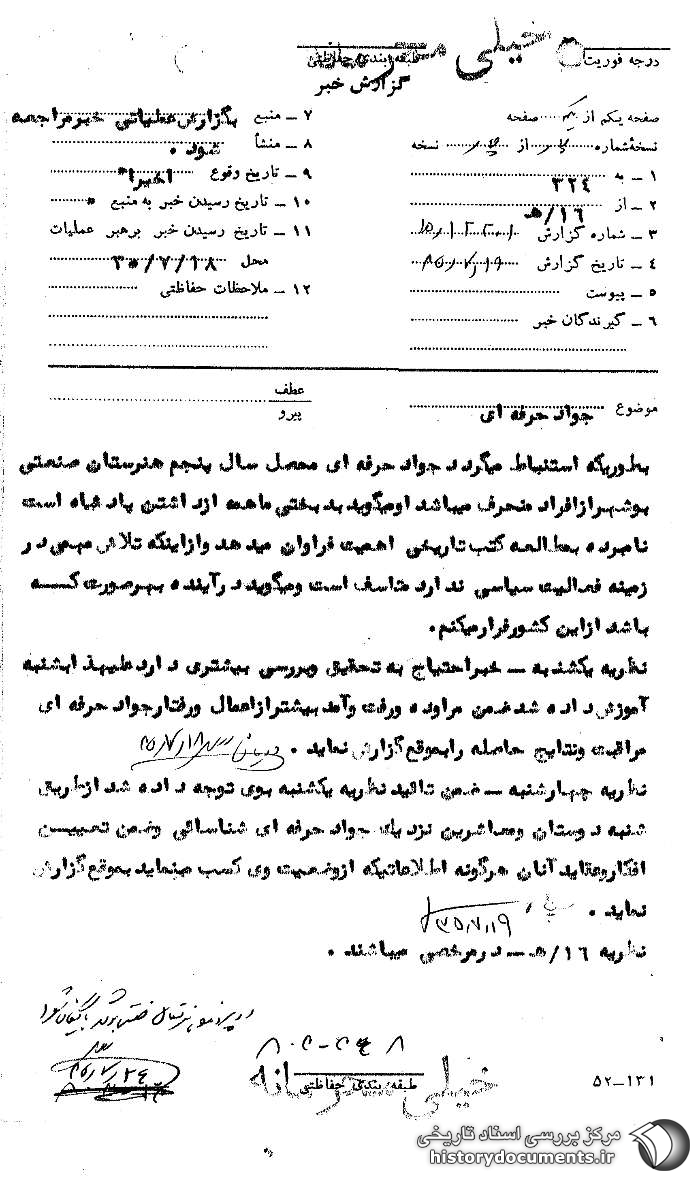 خیلی محرمانه
درجه فوریت
طبقه بندی حفاظتی
گزارش خبر
صفحه یکم از یک صفحه
نسخهٔ شماره از نسخه
۱ ـ به ۳۲۴
۲ ـ از ۱۶/هـ
۳ ـ شماره گزارش
۴ ـ تاریخ گزارش ۳۵/۷/۱۹
۵ ـ پیوست
۶ ـ گیرندگان خبر
۷ ـ منبع بگزارش عملیاتی خبر مراجعه
۸ ـ منشأ شود .
۹ ـ تاریخ وقوع اخیرا"
۱۰ ـ تاریخ رسیدن خبر به منبع "
۱۱ ـ تاریخ رسیدن خبر برهبر عملیات
محل ۳۵/۷/۱۸
۱۲ ـ ملاحظات حفاظتی
عطف
پیرو
موضوع جواد حرفه ای
بطوریکه استنباط میگردد جواد حرفه ای محصل سال پنجم هنرستان صنعتی
بوشهر از افراد منحرف میباشد او میگوید بدبختی ما همه از داشتن پادشاه است
نامبرده بمطالعه کتب تاریخی اهمیت فراوان میدهد و از اینکه تلاش مهمی در
زمینه فعالیت سیاسی ندارد متاسف است و میگوید در آینده بهر صورت کسه
باشد از این کشور فرار میکنم.
نظریه یکشنبه ـ خبر احتیاج به تحقیق و بررسی بیشتری دارد علیهذا بشنبه
آموزش داده شد ضمن مراوده و رفت و آمد بیشتر از اعمال و رفتار جواد حرفه ای
مراقبت و نتایج حاصله را بموقع گزارش نماید . ۳۵/۷/۱۸
نظریه چهارشنبه ـ ضمن تائید نظریه یکشنبه بوی توجه داده شد از طریق
شنبه دوستان و معاشرین نزدیک جواد حرفه ای شناسائی و ضمن تعیین
افکار و عقاید آنان هرگونه اطلاعاتیکه از وضعیت وی کسب مینماید بموقع گزارش
نماید . ۳۵/۷/۱۹
نظریه ۱۶/هـ ـ در مرخصی میباشند .
خیلی محرمانه
طبقه بندی حفاظتی
۵۲ـ۱۳۱
مرکز بررسی اسناد تاریخی
historydocuments.ir